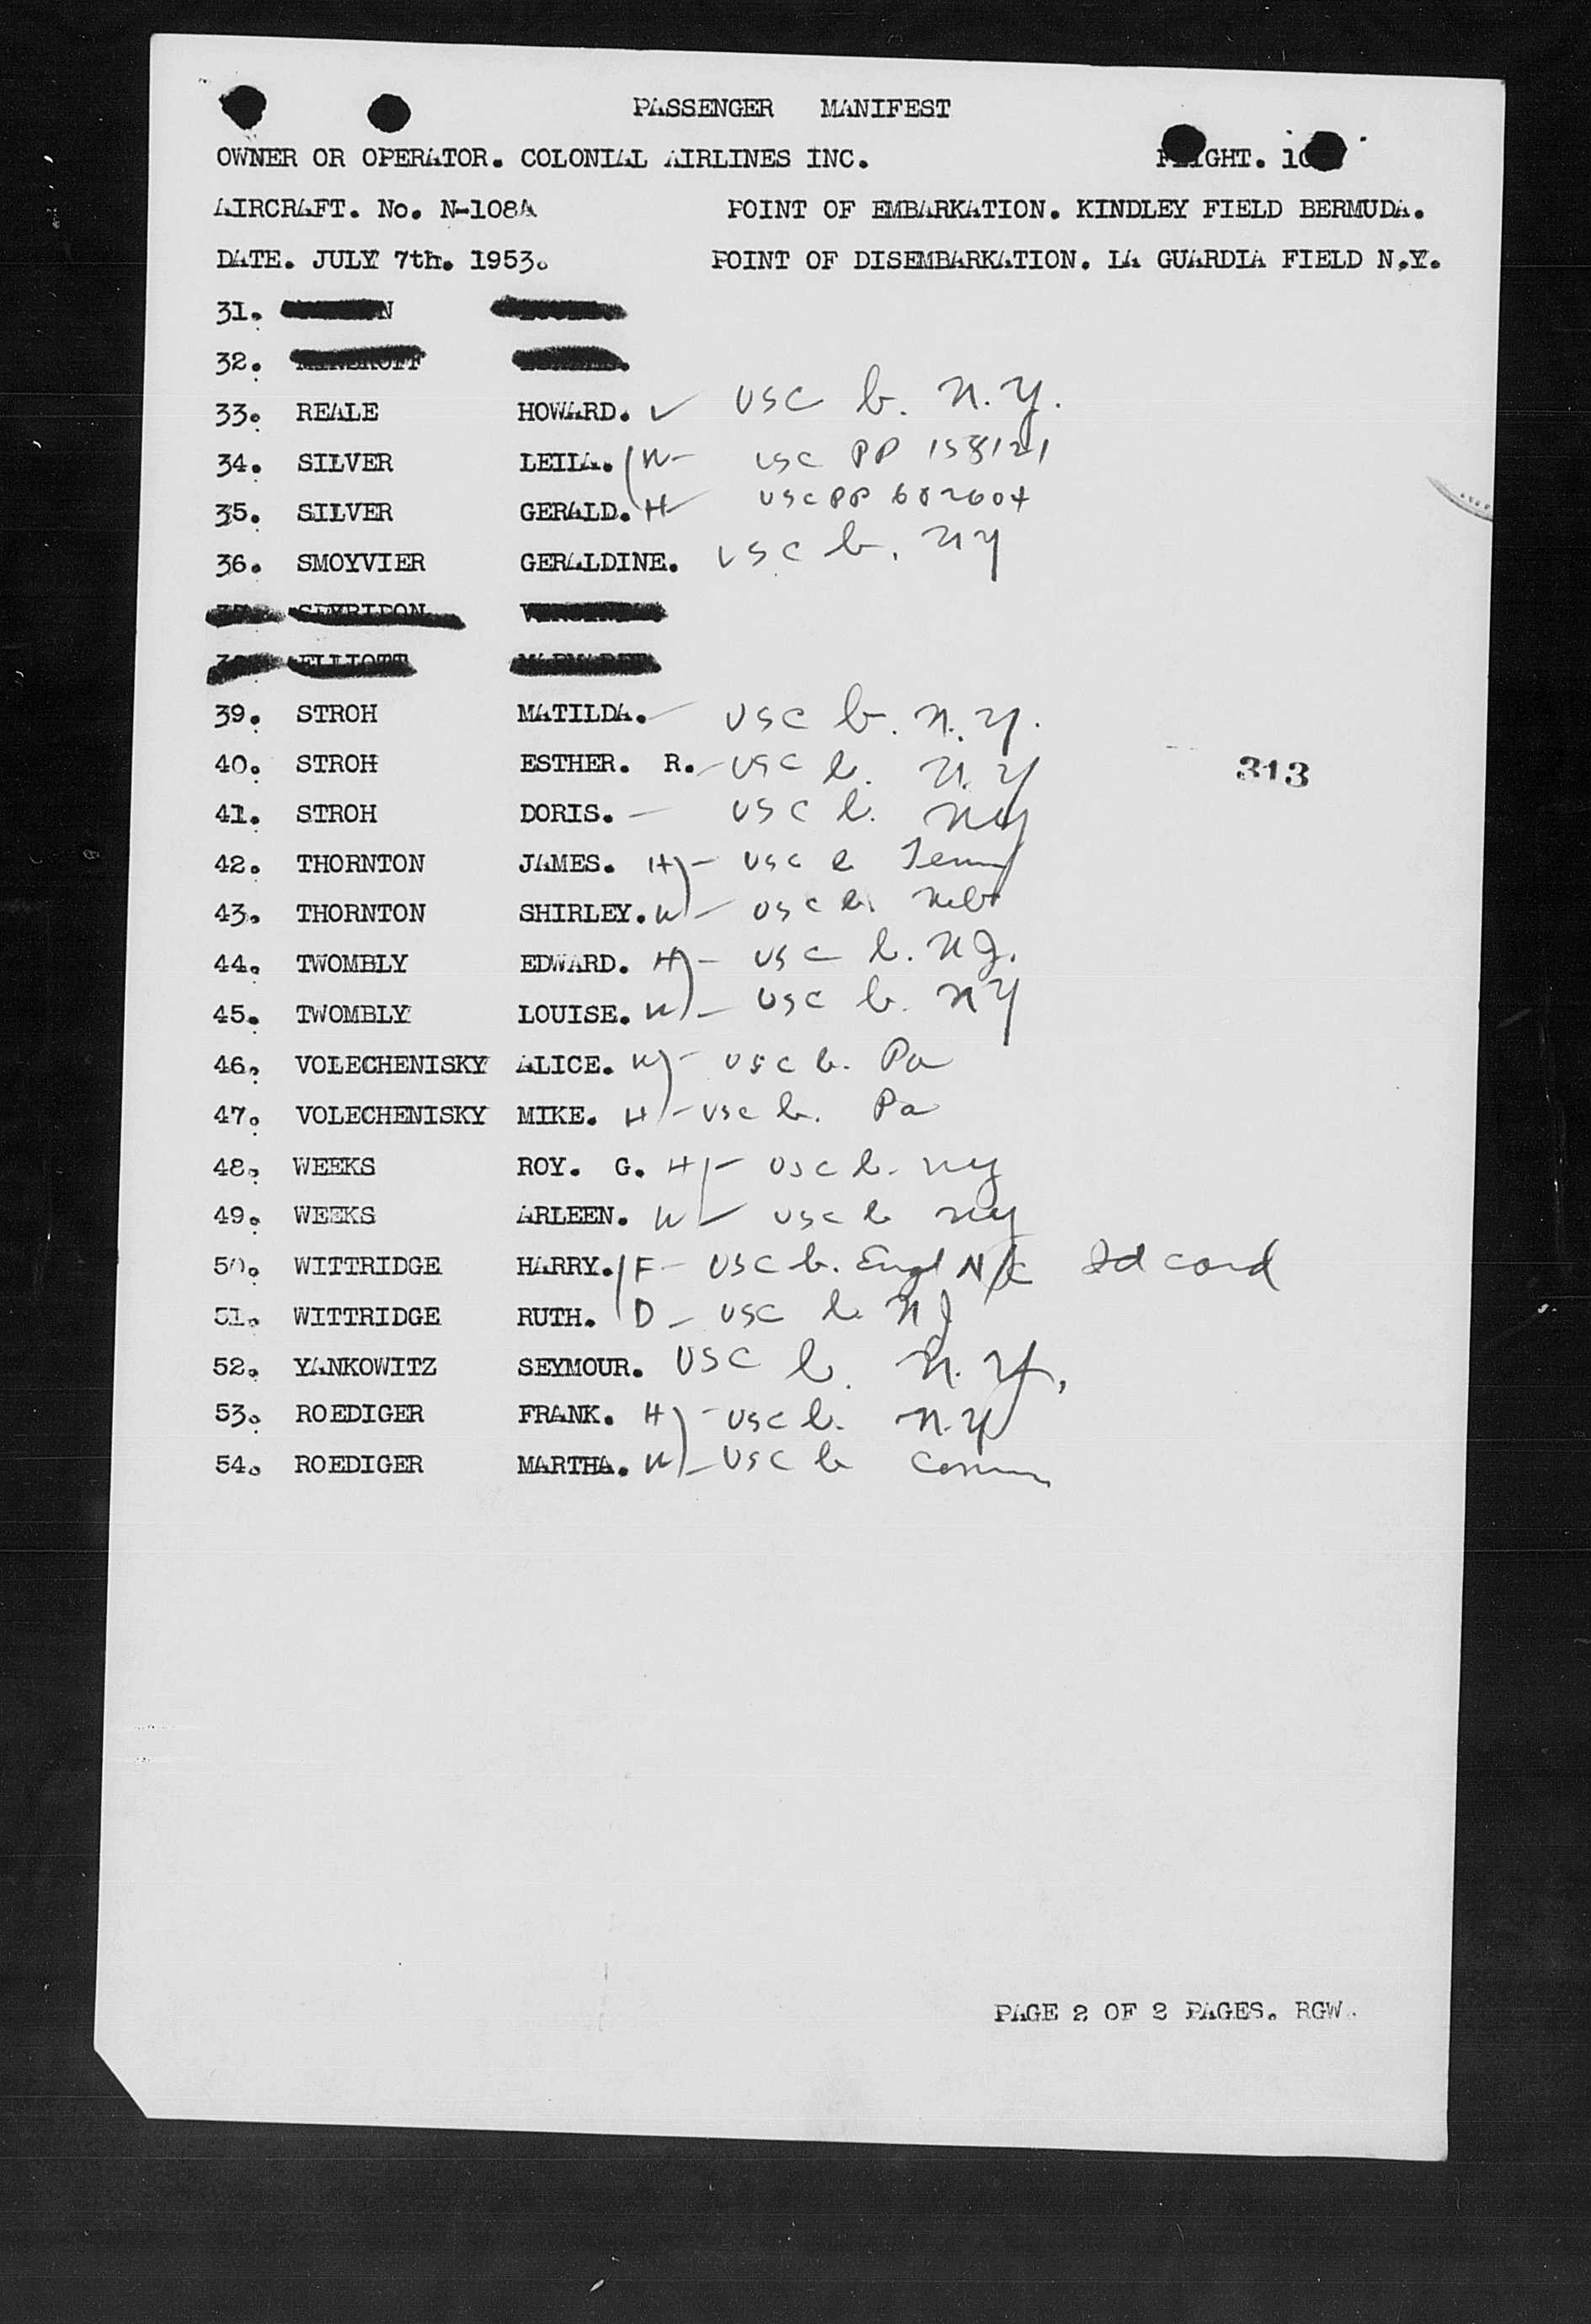 PASSENGER MANIFEST
OWNER OR OPERATOR. COLONIAL AIRLINES INC.
AIRCRAFT. No. N-108A POINT OF EMBARKATION. KINDLEY FIELD BERMUDA.
DATE. JULY 7th. 1953. POINT OF DISEMBARKATION. LA GUARDIA FIELD N.Y.
31.
32.
33. REALE HOWARD. ✓ USC b. N.Y.
34. SILVER LEILA. W- USC PP 158121
35. SILVER GERALD. H USC PP 682604
36. SMOYVIER GERALDINE. USC b. NY
SPYRIDON
ELLIOTT
39. STROH MATILDA. - USC b. N.Y.
40. STROH ESTHER. R. - USC b. N.Y
313
41. STROH DORIS. - USC b. NY
42. THORNTON JAMES. H) - USC b Tenn
43. THORNTON SHIRLEY. W) - USC b. Neb
44. TWOMBLY EDWARD. H) - USC b. NJ.
45. TWOMBLY LOUISE. W) - USC b. NY
46. VOLECHENISKY ALICE. W) - USC b. Pa
47. VOLECHENISKY MIKE. H) - USC b. Pa
48. WEEKS ROY. G. H) - USC b. NY
49. WEEKS ARLEEN. W - USC b NY
50. WITTRIDGE HARRY. (F - USC b. Engl N/C Id card
51. WITTRIDGE RUTH. (D - USC b NJ
52. YANKOWITZ SEYMOUR. USC b. N.Y.
53. ROEDIGER FRANK. H) - USC b. N.Y
54. ROEDIGER MARTHA. W) - USC b Conn
PAGE 2 OF 2 PAGES. RGW.